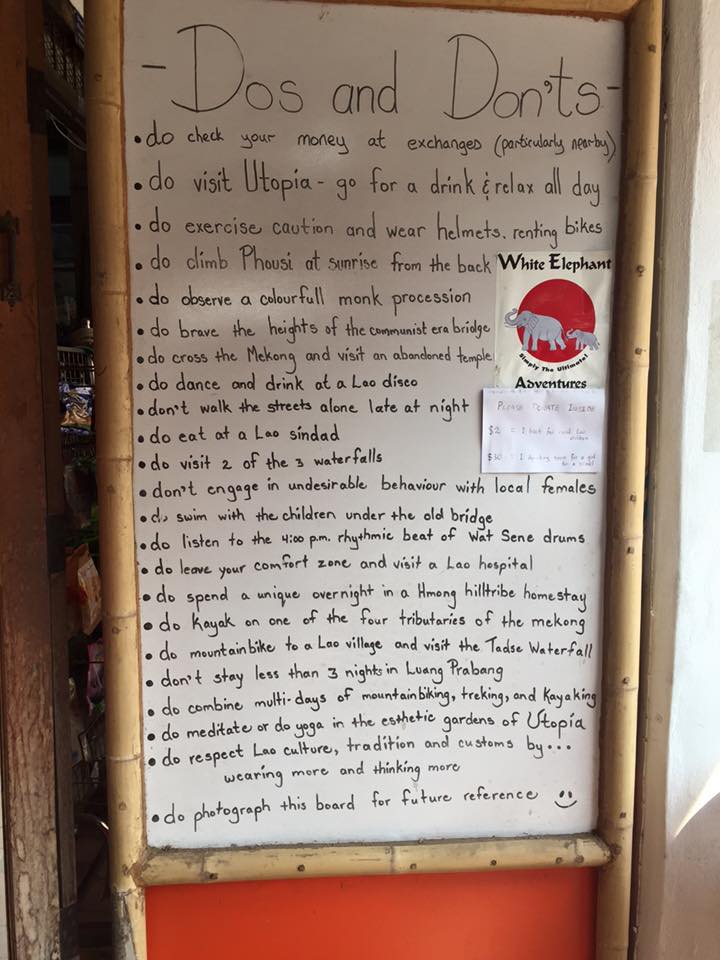 - Dos and Don'ts -
• do check your money at exchanges (particularly nearby)
• do visit Utopia - go for a drink & relax all day
• do exercise caution and wear helmets. renting bikes
• do climb Phousi at sunrise from the back
• do observe a colourfull monk procession
• do brave the heights of the communist era bridge
• do cross the Mekong and visit an abandoned temple
• do dance and drink at a Lao disco
• don't walk the streets alone late at night
• do eat at a Lao sindad
• do visit 2 of the 3 waterfalls
• don't engage in undesirable behaviour with local females
• do swim with the children under the old bridge
• do listen to the 4:00 p.m. rhythmic beat of Wat Sene drums
• do leave your comfort zone and visit a Lao hospital
• do spend a unique overnight in a Hmong hilltribe homestay
• do Kayak on one of the four tributaries of the mekong
• do mountainbike to a Lao village and visit the Tadse Waterfall
• don't stay less than 3 nights in Luang Prabang
• do combine multi-days of mountainbiking, treking, and Kayaking
• do meditate or do yoga in the esthetic gardens of Utopia
• do respect Lao culture, tradition and customs by...
wearing more and thinking more
• do photograph this board for future reference
White Elephant
Simply The Ultimate!
Adventures
PLEASE DONATE INSIDE
$2 = 1 book for rural Lao
children
$30 = 1